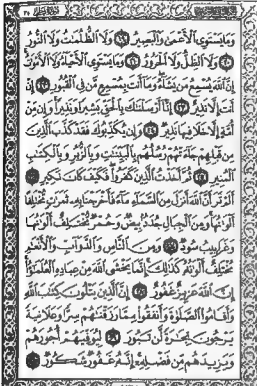 وَمَا يَسْتَوِي الْأَعْمَىٰ وَالْبَصِيرُ ١٩ وَلَا الظُّلُمَٰتُ وَلَا النُّورُ
٢٠ وَلَا الظِّلُّ وَلَا الْحَرُورُ ٢١ وَمَا يَسْتَوِي الْأَحْيَاءُ وَلَا الْأَمْوَٰتُ
إِنَّ اللَّهَ يُسْمِعُ مَن يَشَاءُ وَمَا أَنتَ بِمُسْمِعٍ مَّن فِي الْقُبُورِ ٢٢ إِنْ
أَنتَ إِلَّا نَذِيرٌ ٢٣ إِنَّا أَرْسَلْنَٰكَ بِالْحَقِّ بَشِيرًا وَنَذِيرًا وَإِن مِّنْ
أُمَّةٍ إِلَّا خَلَا فِيهَا نَذِيرٌ ٢٤ وَإِن يُكَذِّبُوكَ فَقَدْ كَذَّبَ الَّذِينَ
مِن قَبْلِهِمْ جَاءَتْهُمْ رُسُلُهُم بِالْبَيِّنَٰتِ وَبِالزُّبُرِ وَبِالْكِتَٰبِ
الْمُنِيرِ ٢٥ ثُمَّ أَخَذْتُ الَّذِينَ كَفَرُوا فَكَيْفَ كَانَ نَكِيرِ ٢٦
أَلَمْ تَرَ أَنَّ اللَّهَ أَنزَلَ مِنَ السَّمَاءِ مَاءً فَأَخْرَجْنَا بِهِ ثَمَرَٰتٍ مُّخْتَلِفًا
أَلْوَٰنُهَا وَمِنَ الْجِبَالِ جُدَدٌ بِيضٌ وَحُمْرٌ مُّخْتَلِفٌ أَلْوَٰنُهَا
وَغَرَابِيبُ سُودٌ ٢٧ وَمِنَ النَّاسِ وَالدَّوَابِّ وَالْأَنْعَٰمِ
مُخْتَلِفٌ أَلْوَٰنُهُ كَذَٰلِكَ إِنَّمَا يَخْشَى اللَّهَ مِنْ عِبَادِهِ الْعُلَمَٰؤُا
إِنَّ اللَّهَ عَزِيزٌ غَفُورٌ ٢٨ إِنَّ الَّذِينَ يَتْلُونَ كِتَٰبَ اللَّهِ
وَأَقَامُوا الصَّلَوٰةَ وَأَنفَقُوا مِمَّا رَزَقْنَٰهُمْ سِرًّا وَعَلَانِيَةً
يَرْجُونَ تِجَٰرَةً لَّن تَبُورَ ٢٩ لِيُوَفِّيَهُمْ أُجُورَهُمْ
وَيَزِيدَهُم مِّن فَضْلِهِ إِنَّهُ غَفُورٌ شَكُورٌ ٣٠